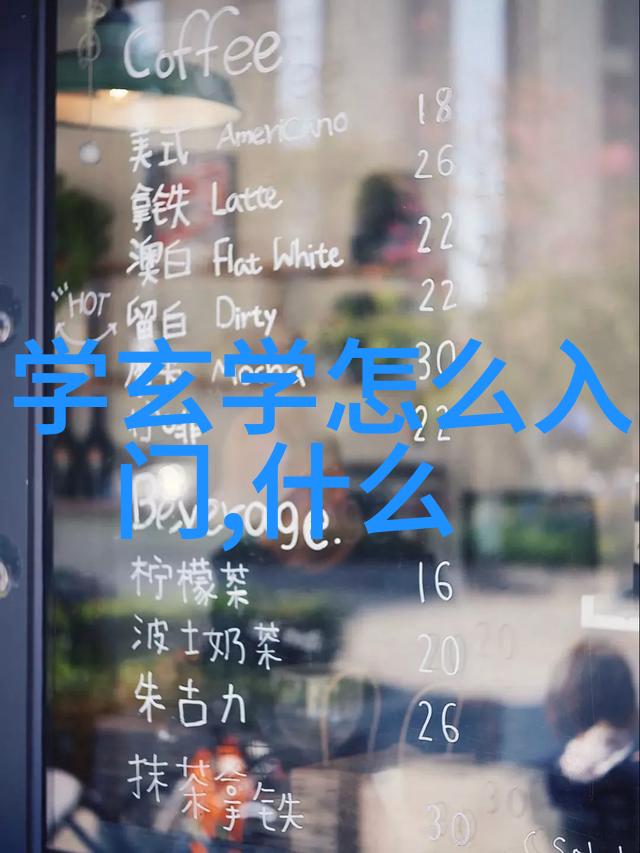 Coffee
美式 Americano 18
拿铁 Latte 26
澳白 Flat White 22
HOT
留白 Dirty 22
Mocha 30
学玄学怎么入
啡 22
门,什么
Beverage.
柠檬茶 16
波士奶茶 20
朱古力 26
抹茶拿铁 30